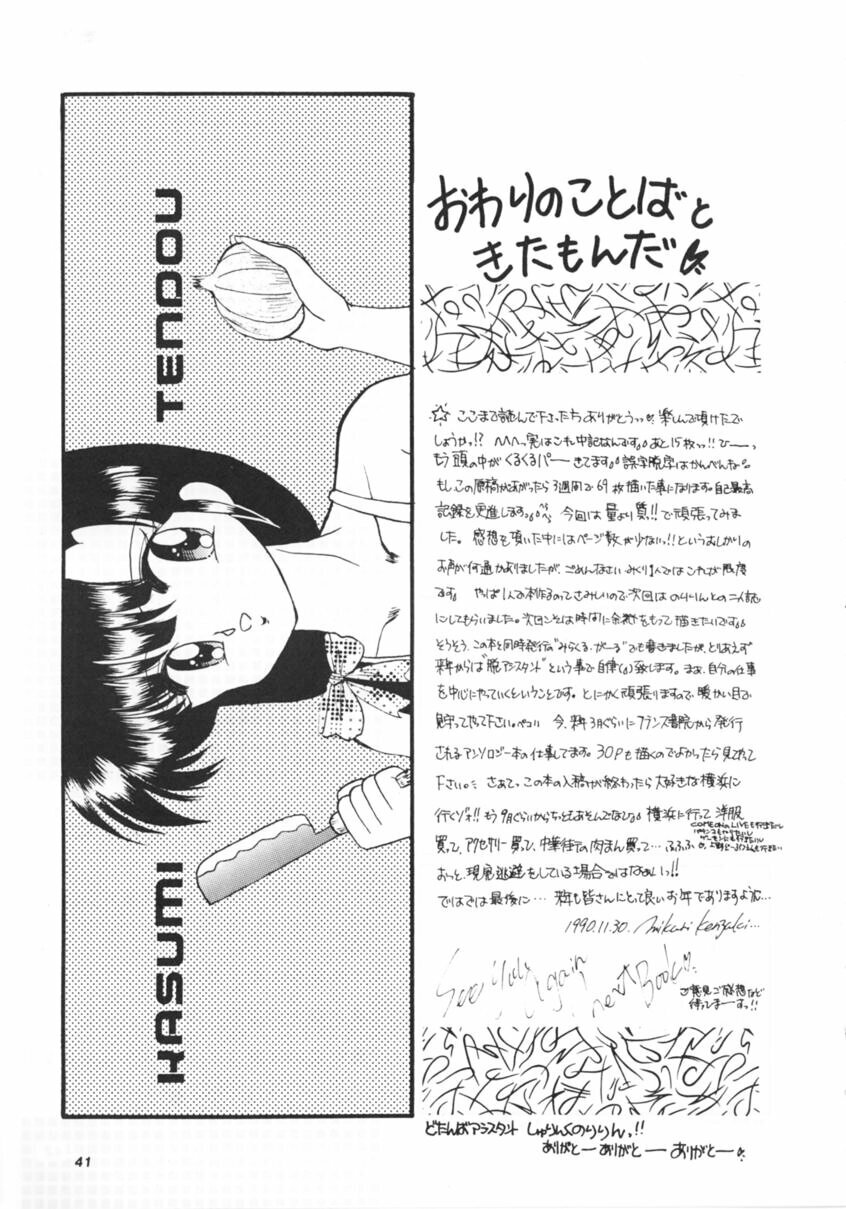 おわりのことばと
きたもんだ
☆ここまで読んで下さったちありがとうっっ。楽しんで頂けたで
しょうかっ!?へへへっ実はこれ中記なんです。あと15枚っ!!ひーーっ
もう頭の中がくるくるパーーきてます。誤字脱字はかんべんね。
もし、この原稿があがったら3週間で69枚描いた事になります。自己最高
記録を更進しますっ。今回は量より質っ!!で頑張ってみま
した。感想を頂いた中にはページ数が少ないっ!!というおしかりの
お声が何通かありましたが、ごめんなさいみくり1人ではこれが限度
です。やっぱ1人で本作るのってさみしいので次回はのりりんとの二人誌
にしてもらいました。次回こそは時間に余裕をもって描きたいです。
そうそう、この本と同時発行の"みらくる・がーる"でも書きましたが、とりあえず
来年からは"脱アシスタント"という事で自律(?)致します。まあ、自分の仕事
を中心にやっていくということです。とにかく頑張りますので、暖かい目で
見守ってやって下さい。ペコ!!今、来年3月ぐらいにフランス書院から発行
されるアンソロジー本の仕事してます。30Pも描くのでよかったら見てやって
下さい。さあてっ、この本の入稿が終わったら大好きな横浜に
行くゾォ!!もう9月ぐらいからちっともあそんでないし。横浜に行って洋服
買って、アクセサリー買って、中華街の肉まん買って…ふふふ
おっと、現実逃避をしている場合ではなぁいっ!!
ではでは最後に…来年も皆さんにとって良いお年でありますように…
1990.11.30. Mikuri Kenzaki…
See You Again
next Book
ご意見ご感想など
待ってまーすっ!!
どたんばアシスタント しゅりんくのりりんっ!!
ありがとー ありがとー ありがとー
TENDOU
KASUMI
41